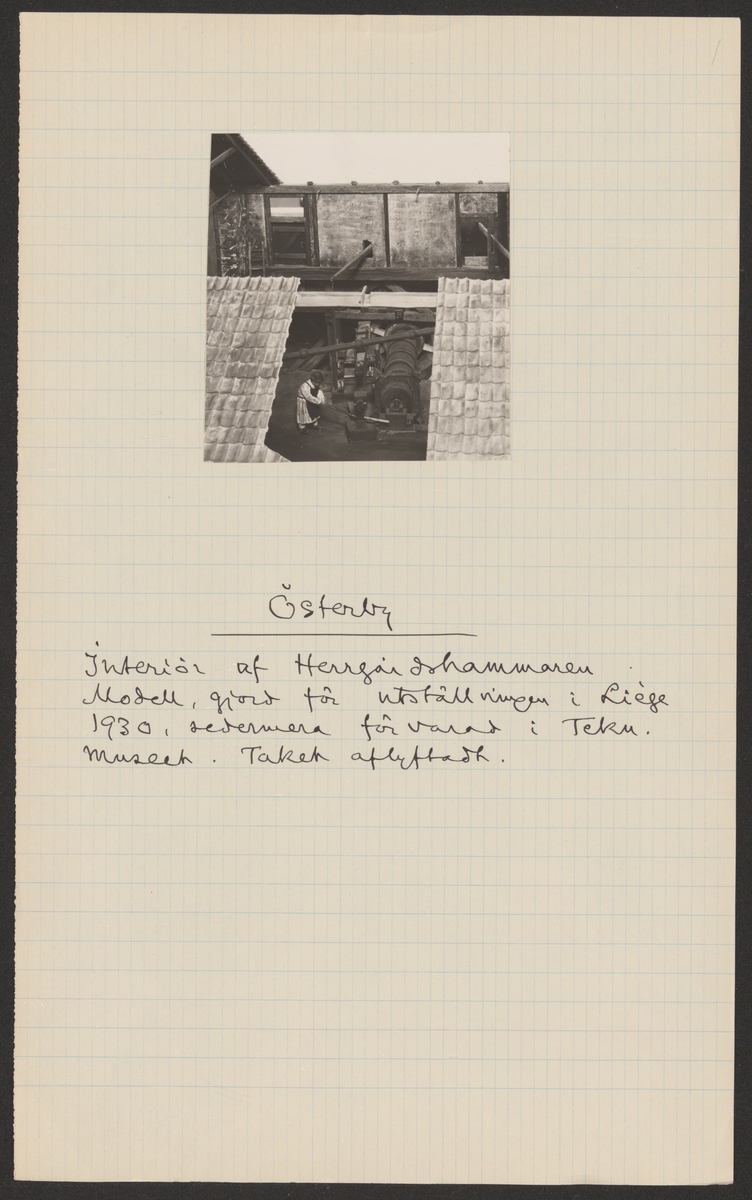 Österby
Interiör af Herrgårdshammaren.
Modell, gjord för utställningen i Liège
1930, sedermera förvarad i Tekn.
Museet. Taket aflyftadt.